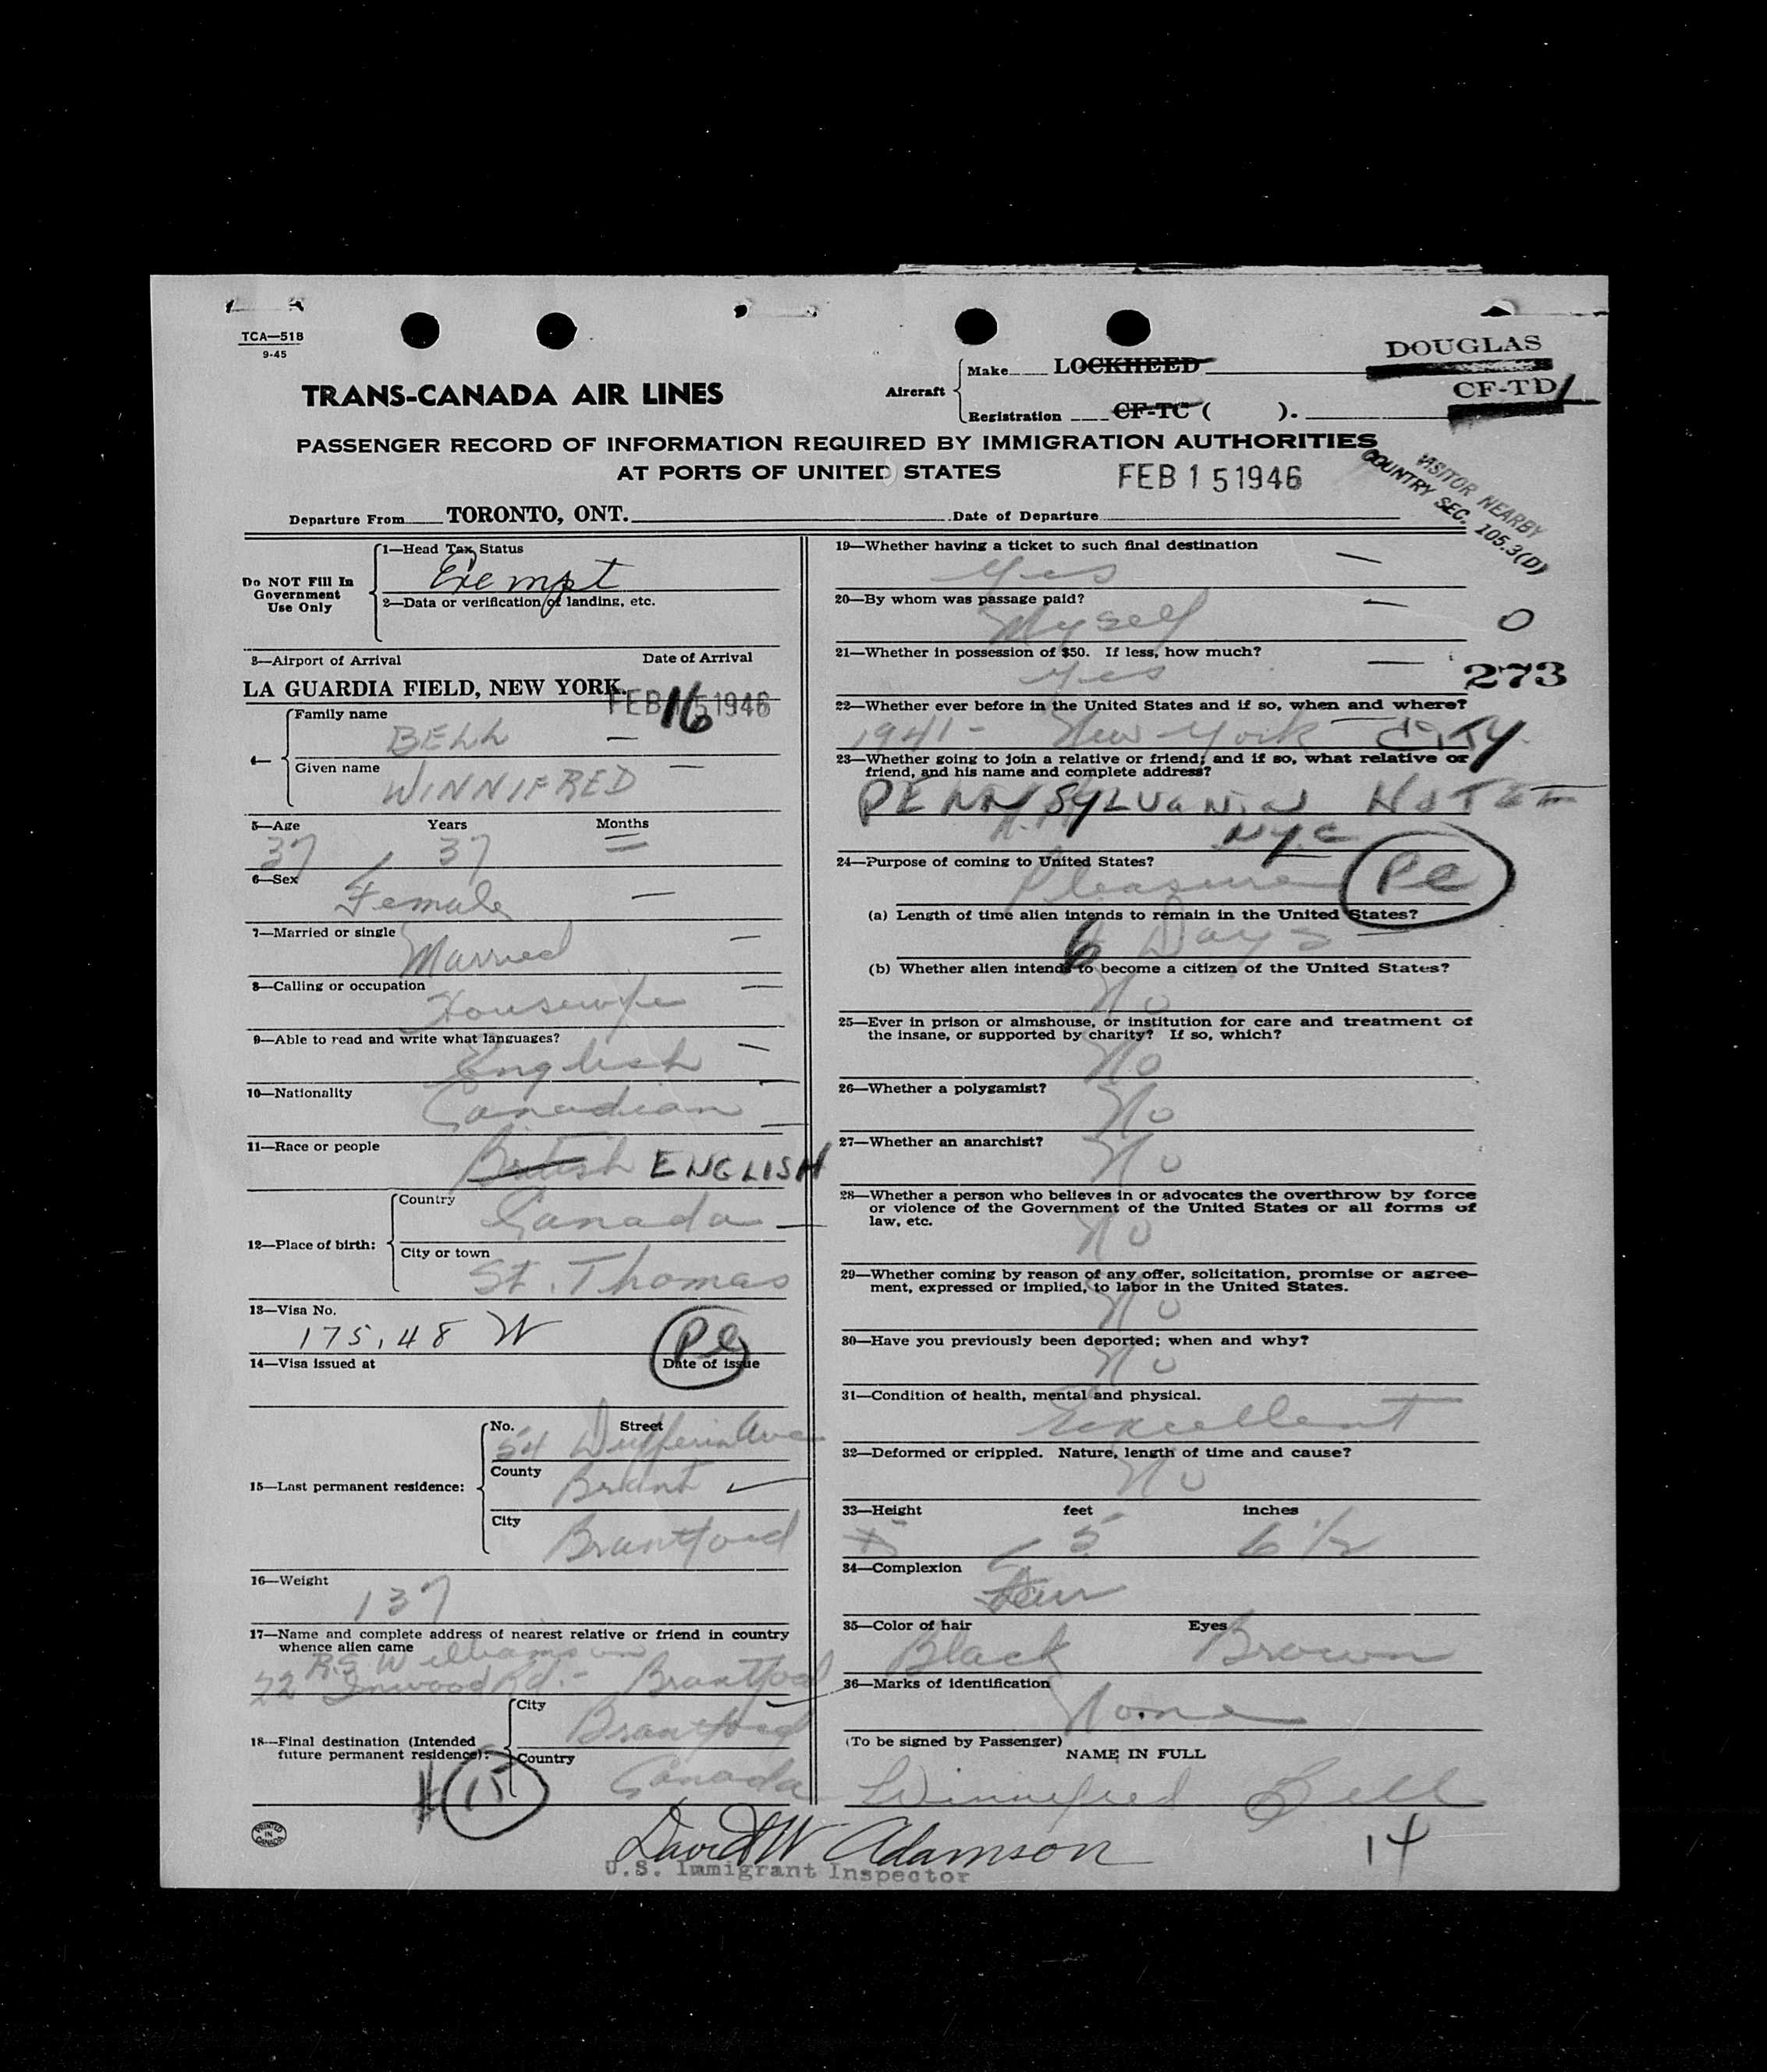 TCA—518
9-45
TRANS-CANADA AIR LINES
Aircraft
Make LOCKHEED
Registration CF-TC ( ).
DOUGLAS
CF-TD
PASSENGER RECORD OF INFORMATION REQUIRED BY IMMIGRATION AUTHORITIES
AT PORTS OF UNITED STATES
FEB 15 1946
VISITOR NEARBY
COUNTRY SEC. 105.3(D)
Departure From TORONTO, ONT.
Date of Departure
Do NOT Fill In
Government
Use Only
1—Head Tax Status
Exempt
2—Data or verification of landing, etc.
3—Airport of Arrival Date of Arrival
LA GUARDIA FIELD, NEW YORK.
FEB 16 1946
4—
Family name
BELL —
Given name
WINNIFRED —
5—Age Years Months
37 37 —
6—Sex
Female —
7—Married or single
Married —
8—Calling or occupation
Housewife —
9—Able to read and write what languages?
English —
10—Nationality
Canadian —
11—Race or people
British ENGLISH
12—Place of birth:
Country
Canada —
City or town
St. Thomas
13—Visa No.
175.48 W
14—Visa issued at Date of issue
15—Last permanent residence:
No. Street
54 Dufferin Ave
County
Brant
City
Brantford
16—Weight
137
17—Name and complete address of nearest relative or friend in country
whence alien came
R.S. Williamson
22 Inwood Rd. - Brantford
18—Final destination (Intended
future permanent residence):
City
Brantford
Country
Canada
15
PRINTED
IN
CANADA
19—Whether having a ticket to such final destination
Yes —
20—By whom was passage paid?
Myself —
0
21—Whether in possession of $50. If less, how much?
Yes —
273
22—Whether ever before in the United States and if so, when and where?
1941 - New York CITY
23—Whether going to join a relative or friend; and if so, what relative or
friend, and his name and complete address?
PENNSYLVANIA HOTEL
NYC
24—Purpose of coming to United States?
Pleasure
(a) Length of time alien intends to remain in the United States?
6 Days
(b) Whether alien intends to become a citizen of the United States?
No
25—Ever in prison or almshouse, or institution for care and treatment of
the insane, or supported by charity? If so, which?
No
26—Whether a polygamist?
No
27—Whether an anarchist?
No
28—Whether a person who believes in or advocates the overthrow by force
or violence of the Government of the United States or all forms of
law, etc.
No
29—Whether coming by reason of any offer, solicitation, promise or agree-
ment, expressed or implied, to labor in the United States.
No
30—Have you previously been deported; when and why?
No
31—Condition of health, mental and physical.
Excellent
32—Deformed or crippled. Nature, length of time and cause?
No
33—Height feet inches
5 6 1/2
34—Complexion
Fair
35—Color of hair Eyes
Black Brown
36—Marks of identification
None
(To be signed by Passenger)
NAME IN FULL
Winnifred Bell
14
David W Adamson
U.S. Immigrant Inspector